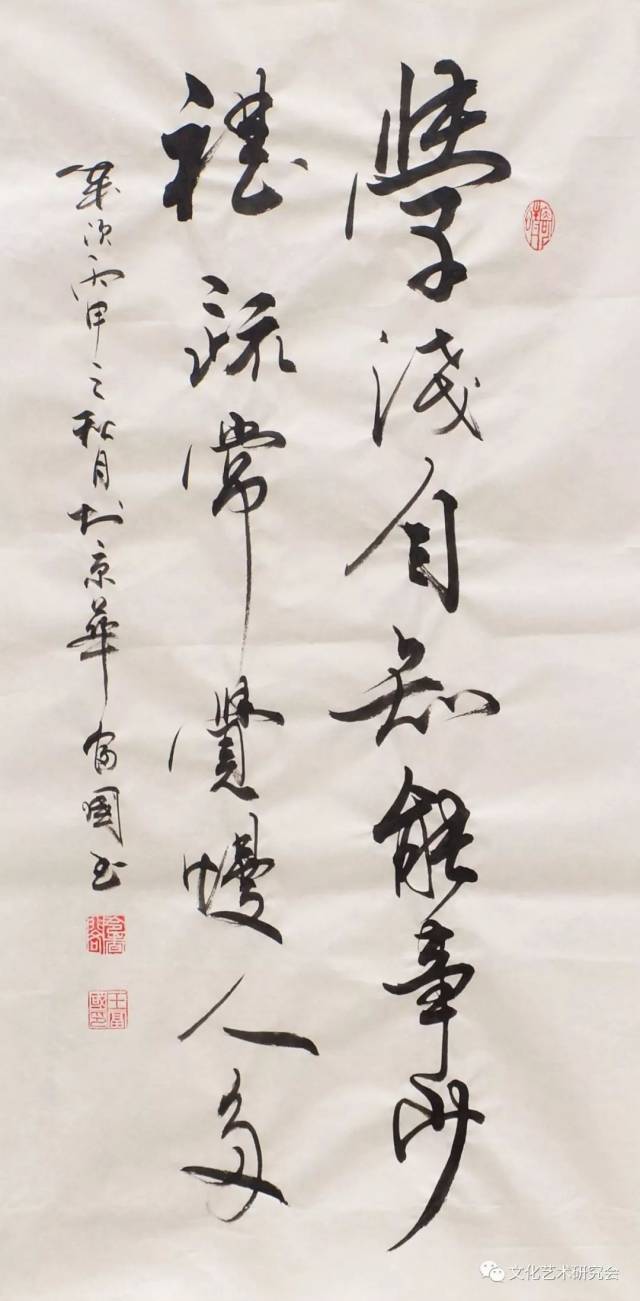 學淺自知能事少
禮疏常覺慢人多
歲次丙申之秋月於京華富國书
王富國印
文化艺术研究会